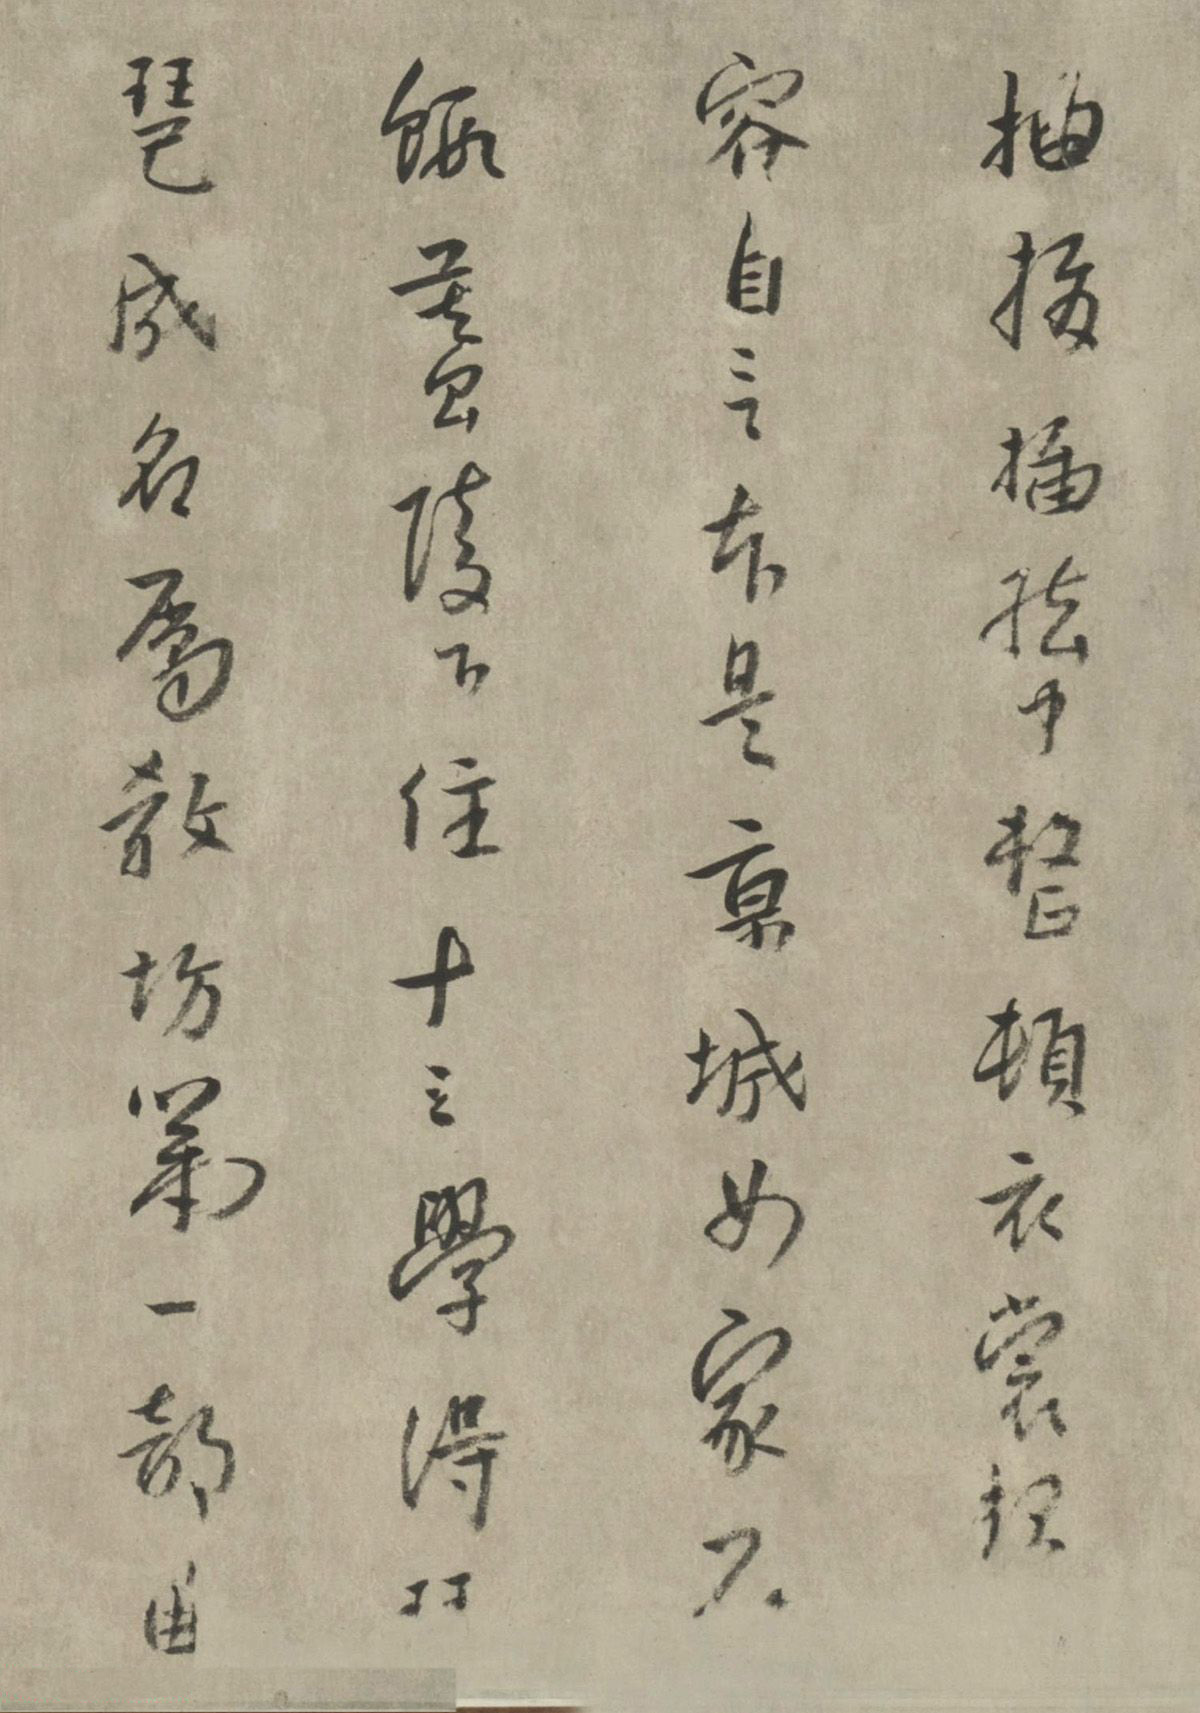 抽撥插絃中整頓衣裳起
容自言本是京城女家在
蝦蟇陵下住十三學得琵
琶成名屬教坊第一部曲